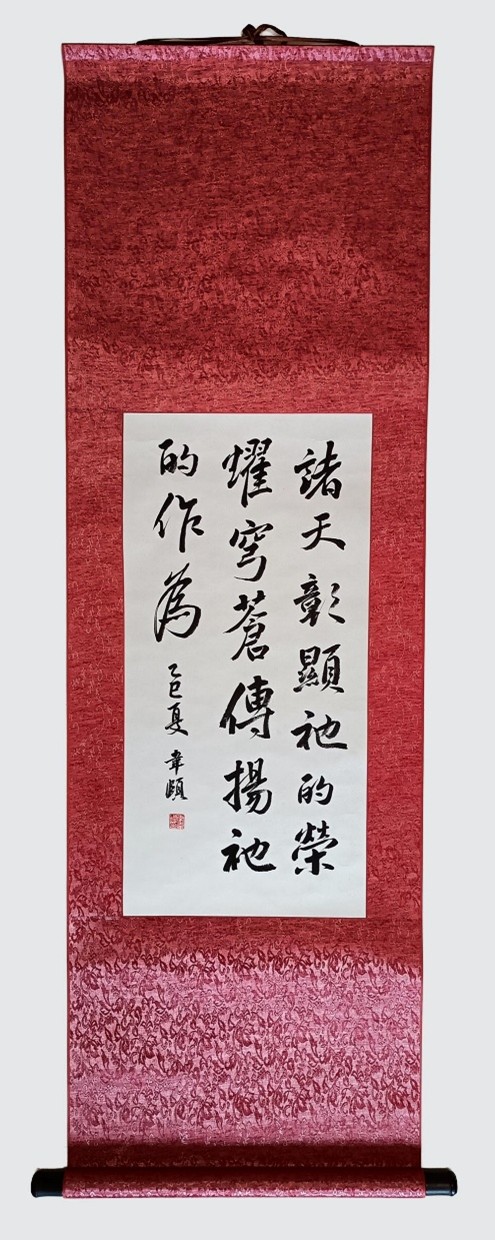 諸天彰顯祂的榮
耀穹蒼傳揚祂
的作為
乙巳夏 韋頤